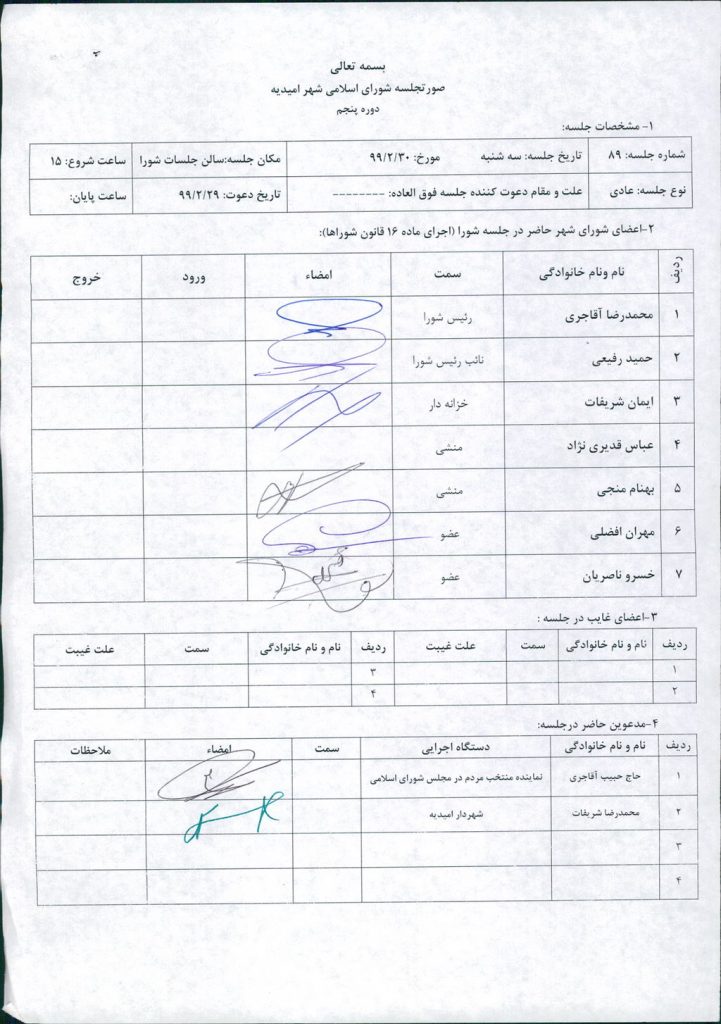 بسمه تعالی
صورتجلسه شورای اسلامی شهر امیدیه
دوره پنجم
۱- مشخصات جلسه:
شماره جلسه: ۸۹ تاریخ جلسه: سه شنبه مورخ: ۹۹/۲/۳۰ مکان جلسه:سالن جلسات شورا ساعت شروع: ۱۵
نوع جلسه: عادی علت و مقام دعوت کننده جلسه فوق العاده: -------- تاریخ دعوت: ۹۹/۲/۲۹ ساعت پایان:
۲-اعضای شورای شهر حاضر در جلسه شورا (اجرای ماده ۱۶ قانون شوراها):
ردیف نام ونام خانوادگی سمت امضاء ورود خروج
۱ محمدرضا آقاجری رئیس شورا
۲ حمید رفیعی نائب رئیس شورا
۳ ایمان شریفات خزانه دار
۴ عباس قدیری نژاد منشی
۵ بهنام منجی منشی
۶ مهران افضلی عضو
۷ خسرو ناصریان عضو
۳-اعضای غایب در جلسه :
ردیف نام و نام خانوادگی سمت علت غیبت ردیف نام و نام خانوادگی سمت علت غیبت
۱ ۳
۲ ۴
۴-مدعوین حاضر درجلسه:
ردیف نام و نام خانوادگی دستگاه اجرایی سمت امضاء ملاحظات
۱ حاج حبیب آقاجری نماینده منتخب مردم در مجلس شورای اسلامی
۲ محمدرضا شریفات شهردار امیدیه
۳
۴